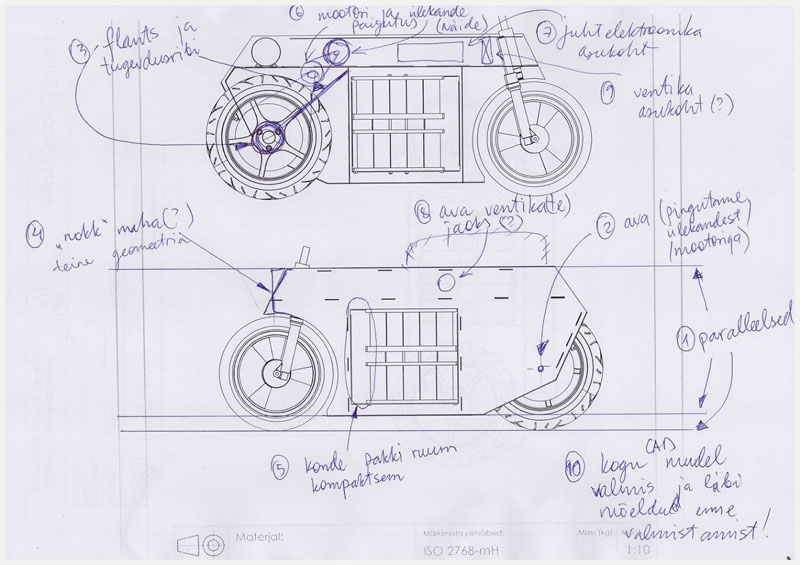 ⑥ mootori ja ülekande
paigutus (näide)
③ flants ja
tugevdusribi
⑦ juhtelektroonika
asukoht
⑨ ventika
asukoht (?)
④ "nokk" maha (?)
teine geomeetria
⑧ ava ventika(te)
jaoks (?)
② ava (pingutame
ülekandest
/mootoriga)
① paralleelsed
⑤ konde pakki ruum
kompaktsem
⑩ kogu CAD mudel
valmis ja läbi
mõeldud enne
valmistamist!
Materjal:
Märkimata piirhälbed:
ISO 2768-mH
Mass (kg):
1:10